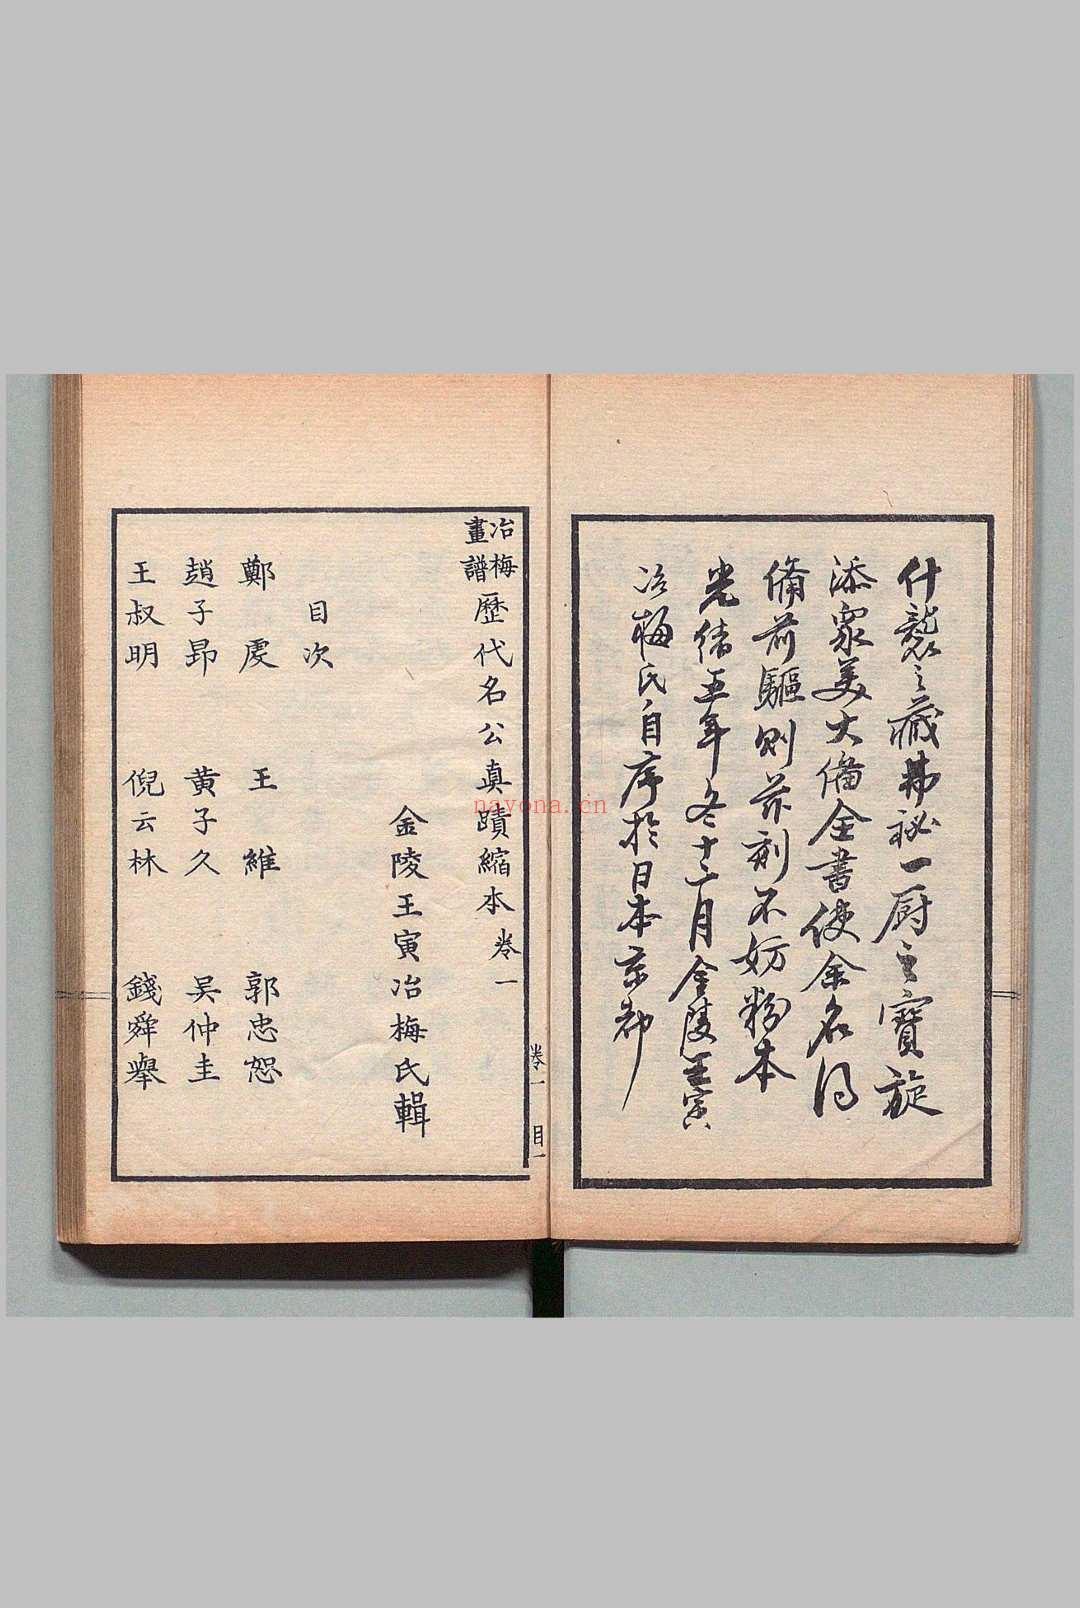 什襲之藏弗祕一厨之寶旋
添衆美大備全書使余名得
備前驅則茲刻不妨粉本
光緒五年冬十二月金陵王寅
冶梅氏自序於日本京都
冶梅畫譜歷代名公真蹟縮本卷一
金陵王寅冶梅氏輯
目次
鄭虔 王維 郭忠恕
趙子昂 黄子久 吴仲圭
王叔明 倪云林 錢舜舉
卷一 目一
nayona.cn